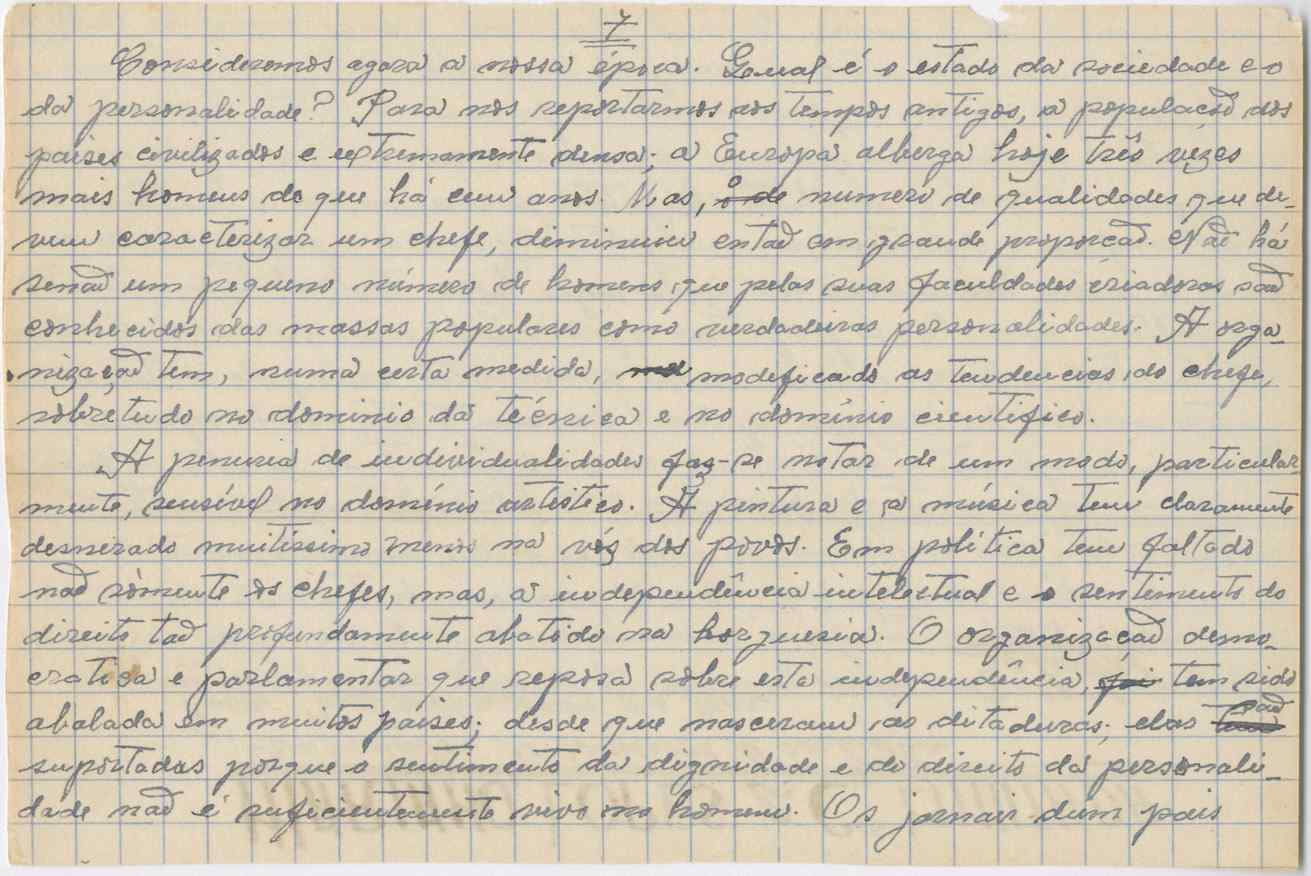 7
Consideremos agora a nossa época. Qual é o estado da sociedade e o
da personalidade? Para nos reportarmos aos tempos antigos, a população dos
países civilizados e extremamente densa; a Europa alberga hoje três vezes
mais homens do que há cem anos. Mas, o numero de qualidades que de-
vem caracterizar um chefe, diminuiu entaõ em grande proporçaõ. Naõ há
senaõ um pequeno número de homens que pelas suas faculdades criadoras saõ
conhecidos das massas populares como verdadeiras personalidades. A orga-
nizaçaõ tem, numa certa medida, modeficado as tendencias do chefe,
sobretudo no dominio da técnica e no domínio cientifico.
A penuria de individualidades faz-se notar de um modo, particular
mente, sensível no domínio artistico. A pintura e a música tem claramente
muitissimo menos na vóz dos povos. Em política tem faltado
naõ sòmente os chefes, mas, a independência intelectual e o sentimento do
direito taõ profundamente abatido na burguesia. O organizaçaõ demo-
cratica e parlamentar que reposa sobre esta independência, tem sido
abalada em muitos paises; desde que nasceram as ditaduras; elas saõ
suportadas porque o sentimento da dignidade e do direito da personali-
dade naõ é suficientemente vivo no homem. Os jornais dum pais